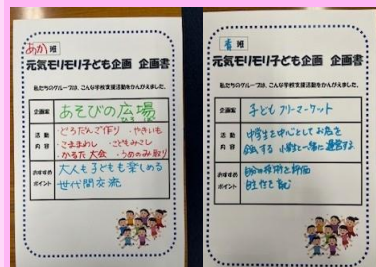 あか 班
元気モリモリ子ども企画 企画書
私たちのグループは、こんな学校支援活動をかんがえました。
企画案
あそびの広場
ひろば
活動内容
・どろだんご作り ・やきいも
・こままわし ・こどもみこし
・かるた大会 ・うめのみ取り
おすすめポイント
大人も子どもも楽しめる
世代間交流
青 班
元気モリモリ子ども企画 企画書
私たちのグループは、こんな学校支援活動をかんがえました。
企画案
子どもフリーマーケット
活動内容
中学生を中心としてお店を
出店する 小学生と一緒に運営する
おすすめポイント
自分の
自主性を育む